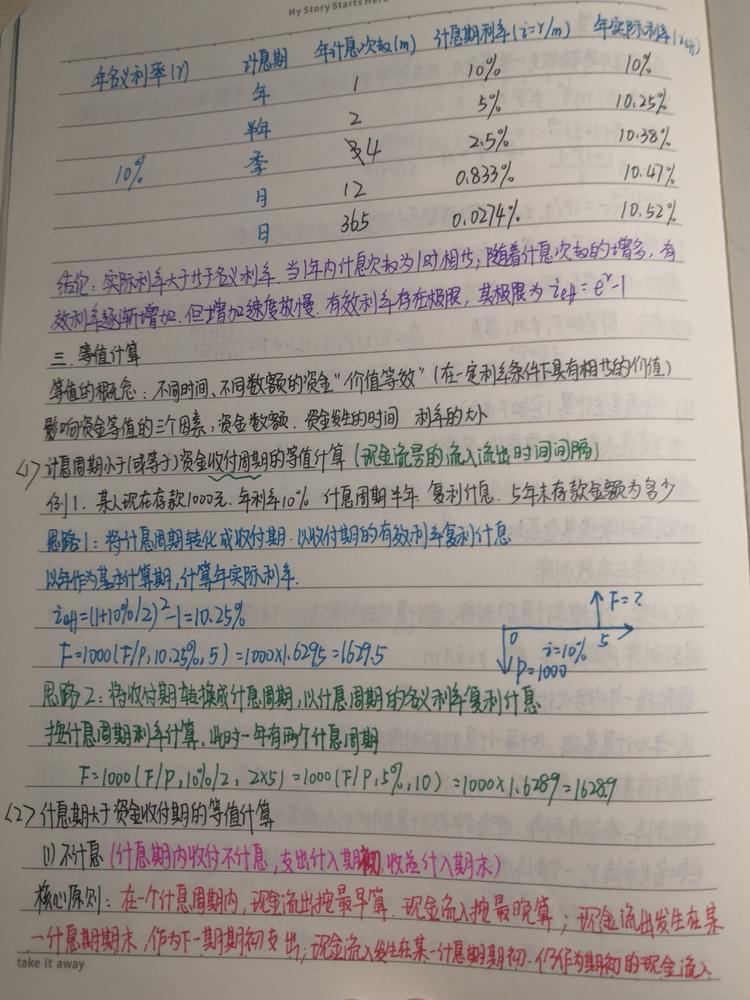 My Story Starts Here
年名义利率(r) 计息期 年计息次数(m) 计息期利率(i=r/m) 年实际利率(ieff)
年 1 10% 10%
半年 2 5% 10.25%
10% 季 4 2.5% 10.38%
月 12 0.833% 10.47%
日 365 0.0274% 10.52%
结论：实际利率大于等于名义利率. 当1年内计息次数为1时相等；随着计息次数的增多，有
效利率逐渐增加.但增加速度放慢. 有效利率存在极限，其极限为 ieff=e^r-1
三. 等值计算
等值的概念：不同时间、不同数额的资金"价值等效"(在一定利率条件下具有相等的价值)
影响资金等值的三个因素：资金数额. 资金发生的时间 利率的大小
<1> 计息周期小于(或等于)资金收付周期的等值计算 (现金流量的流入流出时间间隔)
例1. 某人现在存款1000元. 年利率10% 计息周期半年 复利计息. 5年末存款金额为多少
思路1：将计息周期转化成收付期. 以收付期的有效利率复利计息
以年作为基本计算期，计算年实际利率.
ieff=(1+10%/2)²-1=10.25%
F=1000(F/P,10.25%,5)=1000×1.6295=1629.5
F=?
0 i=10% 5
P=1000
思路2：将收付期转换成计息周期，以计息周期的名义利率复利计息
按计息周期利率计算，此时一年有两个计息周期
F=1000(F/P,10%/2, 2×5)=1000(F/P,5%,10)=1000×1.6289=1628.9
<2> 计息期大于资金收付期的等值计算
(1) 不计息 (计息期内收付不计息，支出计入期初，收益计入期末)
核心原则：在一个计息周期内，现金流出按最早算. 现金流入按最晚算；现金流出发生在某
一计息期期末，作为下一期期初支出；现金流入发生在某一计息期期初. 仍作为期初的现金流入
take it away